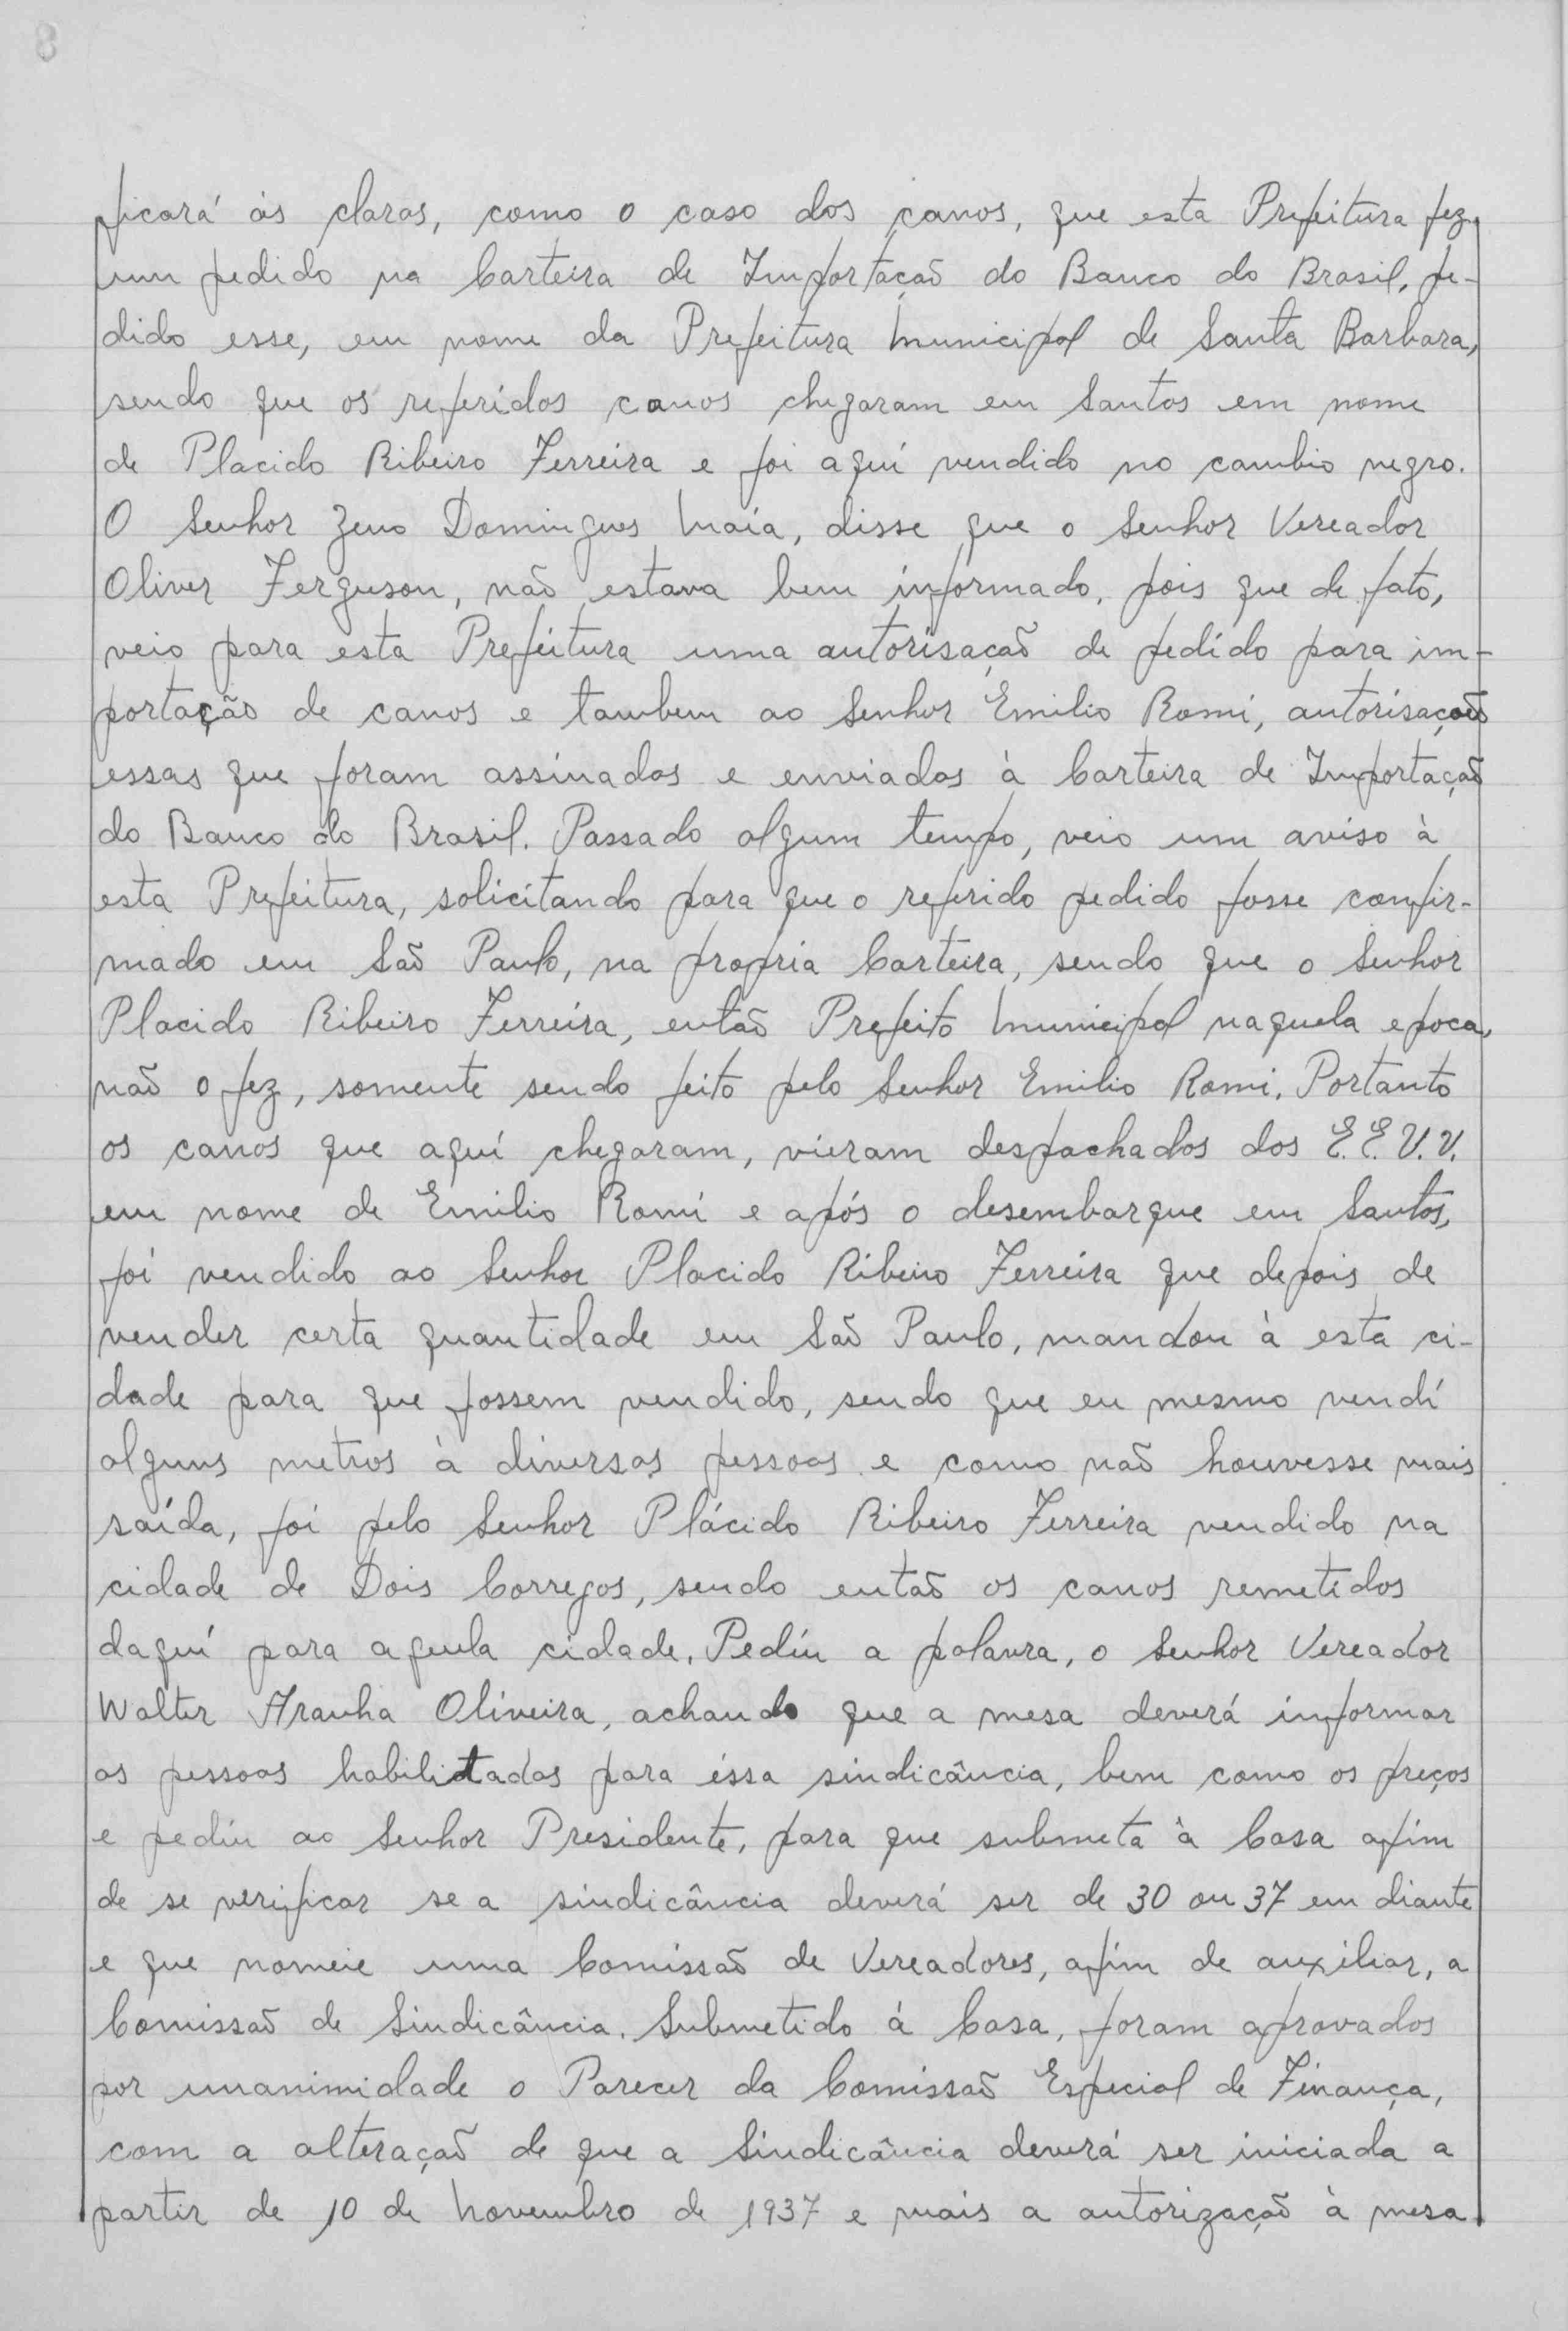 8
ficará ás claras, como o caso dos canos, que esta Prefeitura fez
um pedido na Carteira de Importação do Banco do Brasil, pe-
dido esse, em nome da Prefeitura Municipal de Santa Barbara,
sendo que os referidos canos chegaram em Santos em nome
de Placido Ribeiro Ferreira e foi aquí vendido no cambio negro.
O Senhor Zeno Domingues Maia, disse que o Senhor Vereador
Oliver Ferguson, não estava bem informado, pois que de fato,
veio para esta Prefeitura uma autorisação de pedido para im-
portação de canos e tambem ao Senhor Emilio Romi, autorisações
essas que foram assinadas e enviadas à Carteira de Importação
do Banco do Brasil. Passado algum tempo, veio um aviso à
esta Prefeitura, solicitando para que o referido pedido fosse confir-
mado em São Paulo, na propria Carteira, sendo que o Senhor
Placido Ribeiro Ferreira, então Prefeito Municipal naquela epoca,
não o fez, somente sendo feito pelo Senhor Emilio Romi. Portanto
os canos que aquí chegaram, vieram despachados dos E.E.U.U.
em nome de Emilio Romi e após o desembarque em Santos,
foi vendido ao Senhor Placido Ribeiro Ferreira que depois de
vender certa quantidade em São Paulo, mandou à esta ci-
dade para que fossem vendido, sendo que eu mesmo vendí
alguns metros à diversas pessoas e como não houvesse mais
saída, foi pelo Senhor Plácido Ribeiro Ferreira vendido na
cidade de Dois Corregos, sendo então os canos remetidos
daquí para aquela cidade. Pediu a palavra, o Senhor Vereador
Walter Aranha Oliveira, achando que a mesa deverá informar
as pessoas habilitadas para éssa sindicância, bem como os preços
e pediu ao Senhor Presidente, para que submeta à Casa afim
de se verificar se a sindicância deverá ser de 30 ou 37 em diante
e que nomeie uma Comissão de Vereadores, afim de auxiliar, a
Comissão de Sindicância. Submetido á Casa, foram aprovados
por unanimidade o Parecer da Comissão Especial de Finança,
com a alteração de que a Sindicância deverá ser iniciada a
partir de 10 de Novembro de 1937 e mais a autorização à mesa